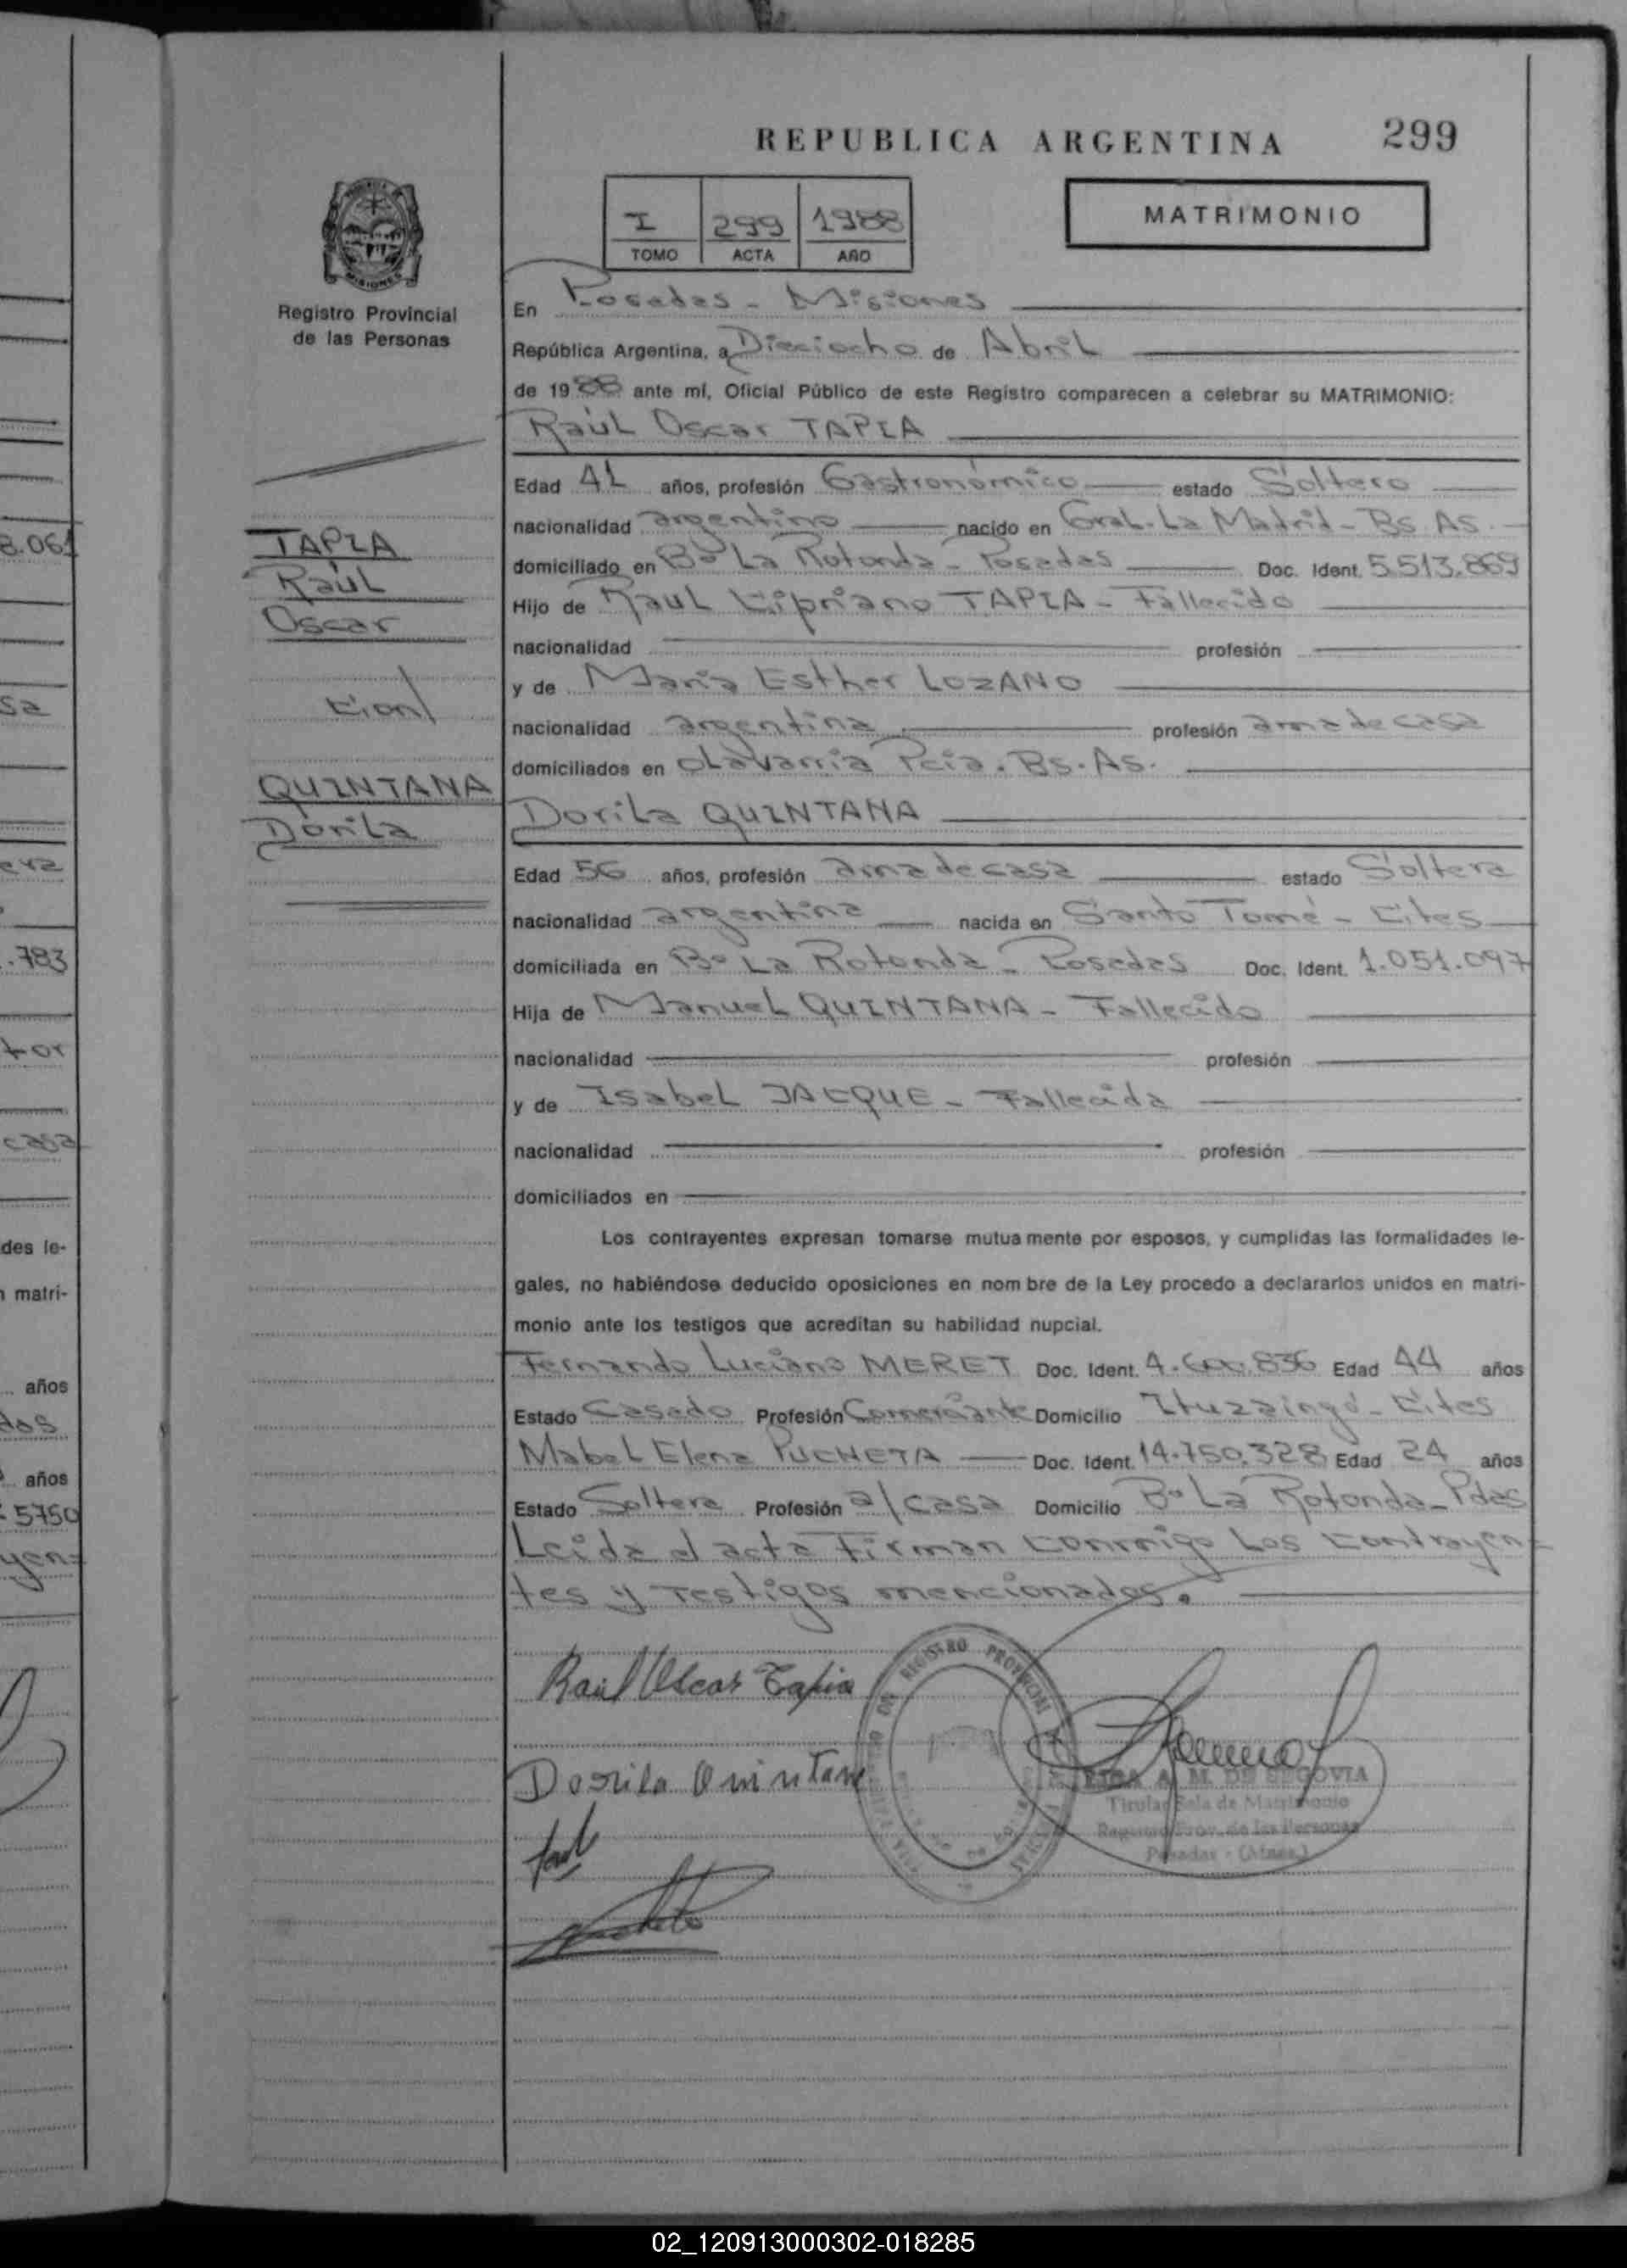 REPUBLICA ARGENTINA 299
I 299 1988
TOMO ACTA AÑO
MATRIMONIO
MISIONES
Registro Provincial
de las Personas
En Posadas - Misiones
República Argentina, a Dieciocho de Abril
de 1988 ante mí, Oficial Público de este Registro comparecen a celebrar su MATRIMONIO:
Raúl Oscar TAPIA
Edad 41 años, profesión Gastronómico estado Soltero
nacionalidad argentino nacido en Gral. La Madrid - Bs. As.
domiciliado en Bº La Rotonda - Posadas Doc. Ident. 5.513.869
Hijo de Raul Cipriano TAPIA - Fallecido
nacionalidad profesión
y de María Esther LOZANO
nacionalidad argentina profesión ama de casa
domiciliados en Olavarria Pcia. Bs. As.
Dorila QUINTANA
Edad 56 años, profesión ama de casa estado Soltera
nacionalidad argentina nacida en Santo Tomé - Ctes
domiciliada en Bº La Rotonda - Posadas Doc. Ident. 1.051.097
Hija de Manuel QUINTANA - Fallecido
nacionalidad profesión
y de Isabel JACQUE - Fallecida
nacionalidad profesión
domiciliados en
Los contrayentes expresan tomarse mutua mente por esposos, y cumplidas las formalidades le-
gales, no habiéndose deducido oposiciones en nom bre de la Ley procedo a declararlos unidos en matri-
monio ante los testigos que acreditan su habilidad nupcial.
Fernando Luciano MERET Doc. Ident. Edad 44 años
Estado Casado Profesión Comerciante Domicilio Ituzaingó - Ctes
Mabel Elena PUCHETA Doc. Ident. 14.750.328 Edad 24 años
Estado Soltera Profesión a/casa Domicilio Bº La Rotonda - Pdas
Leida el acta Firman conmigo los contrayen-
tes y Testigos mencionados.
Raúl Oscar Tapia
Dorila Quintana
REGISTRO PROVINCIAL
A. M. DE SEGOVIA
Titular Sala de Matrimonio
Registro Prov. de las Personas
Posadas - (Mnes.)
TAPIA
Raúl
Oscar
con/
QUINTANA
Dorila
8.061
sa
era
.783
tor
casa
des le-
n matri-
años
dos
años
5750
yen-
02_120913000302-018285